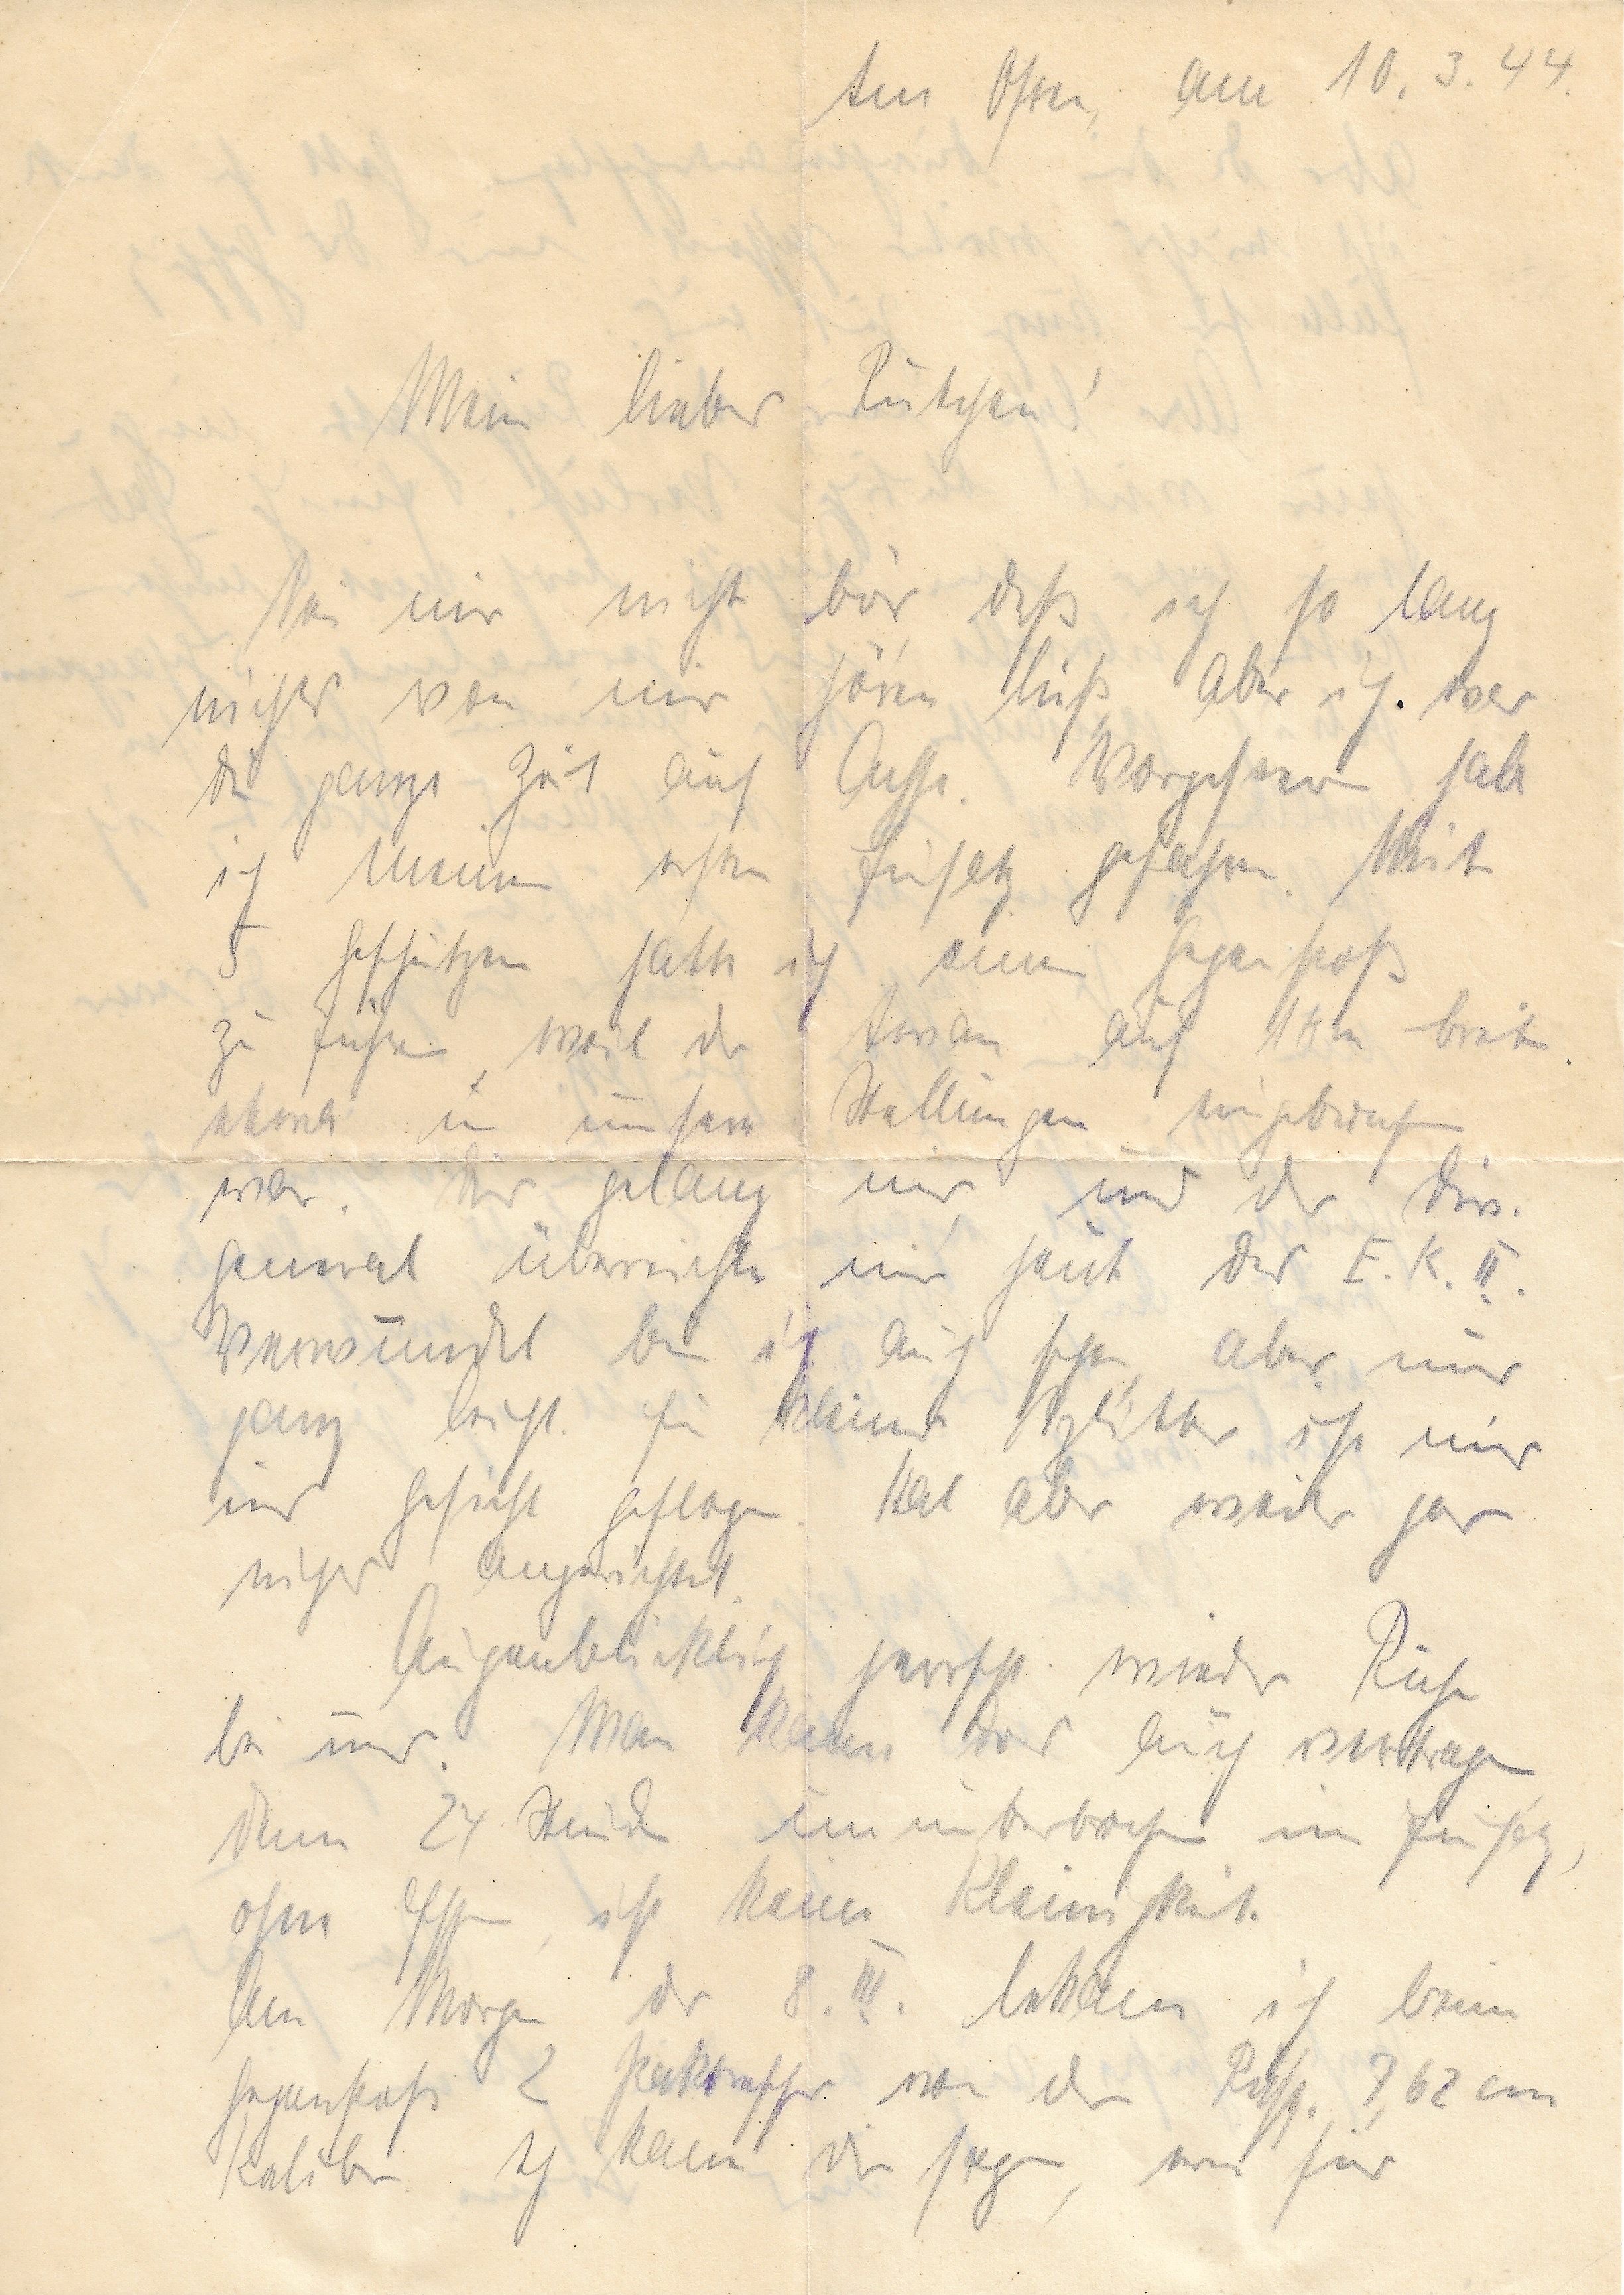 Im Osten, am 10. 3. 44.
Mein lieber
Sei mir nicht bös, daß ich so lang
nichts von mir hören ließ, aber ich war
die ganze Zeit auf Achse. Vorgestern hab
ich meinen ersten Einsatz gefahren. Mit
5 Geschützen hatte ich einen Gegenstoß
zu führen, weil der Iwan auf 1 km breite
etwa in unsere Stellungen eingebrochen
war. Dies gelang mir und der Div.
General überreichte mir heut das E. K. II.
Verwundet bin ich auch schon, aber nur
ganz leicht. Ein kleiner Splitter ist mir
ins Gesicht geflogen. Hat aber weiter gar
nichts angerichtet.
Augenblicklich herrscht wieder Ruhe
bei uns. Man kann das auch vertragen,
denn 24 Stunden ununterbrochen im Einsatz,
ohne Essen, ist keine Kleinigkeit.
Am Morgen des 8. III. bekam ich beim
Gegenstoß 2 Paktreffer von der Russ. 7,62 cm
Kaliber. Ich kann dir sagen, was für